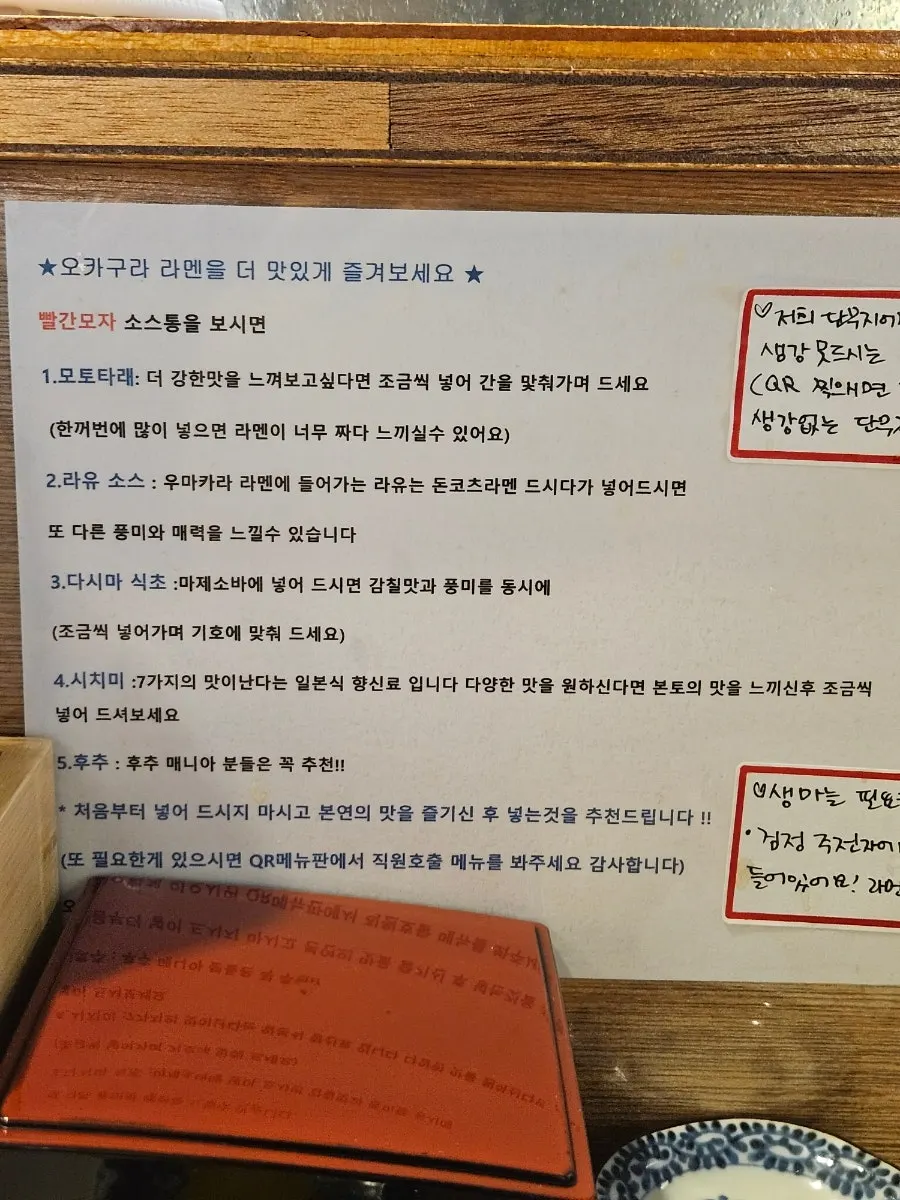 ★오카구라 라멘을 더 맛있게 즐겨보세요 ★
빨간모자 소스통을 보시면
1.모토타래: 더 강한맛을 느껴보고싶다면 조금씩 넣어 간을 맞춰가며 드세요
(한꺼번에 많이 넣으면 라멘이 너무 짜다 느끼실수 있어요)
2.라유 소스 : 우마카라 라멘에 들어가는 라유는 돈코츠라멘 드시다가 넣어드시면
또 다른 풍미와 매력을 느낄수 있습니다
3.다시마 식초 :마제소바에 넣어 드시면 감칠맛과 풍미를 동시에
(조금씩 넣어가며 기호에 맞춰 드세요)
4.시치미 :7가지의 맛이난다는 일본식 향신료 입니다 다양한 맛을 원하신다면 본토의 맛을 느끼신후 조금씩
넣어 드셔보세요
5.후추 : 후추 매니아 분들은 꼭 추천!!
* 처음부터 넣어 드시지 마시고 본연의 맛을 즐기신 후 넣는것을 추천드립니다 !!
(또 필요한게 있으시면 QR메뉴판에서 직원호출 메뉴를 봐주세요 감사합니다)
♡저희 단무지에
생강 못드시는
(QR 찍으시면
생강없는
♡생마늘
• 검정
들어있어요!